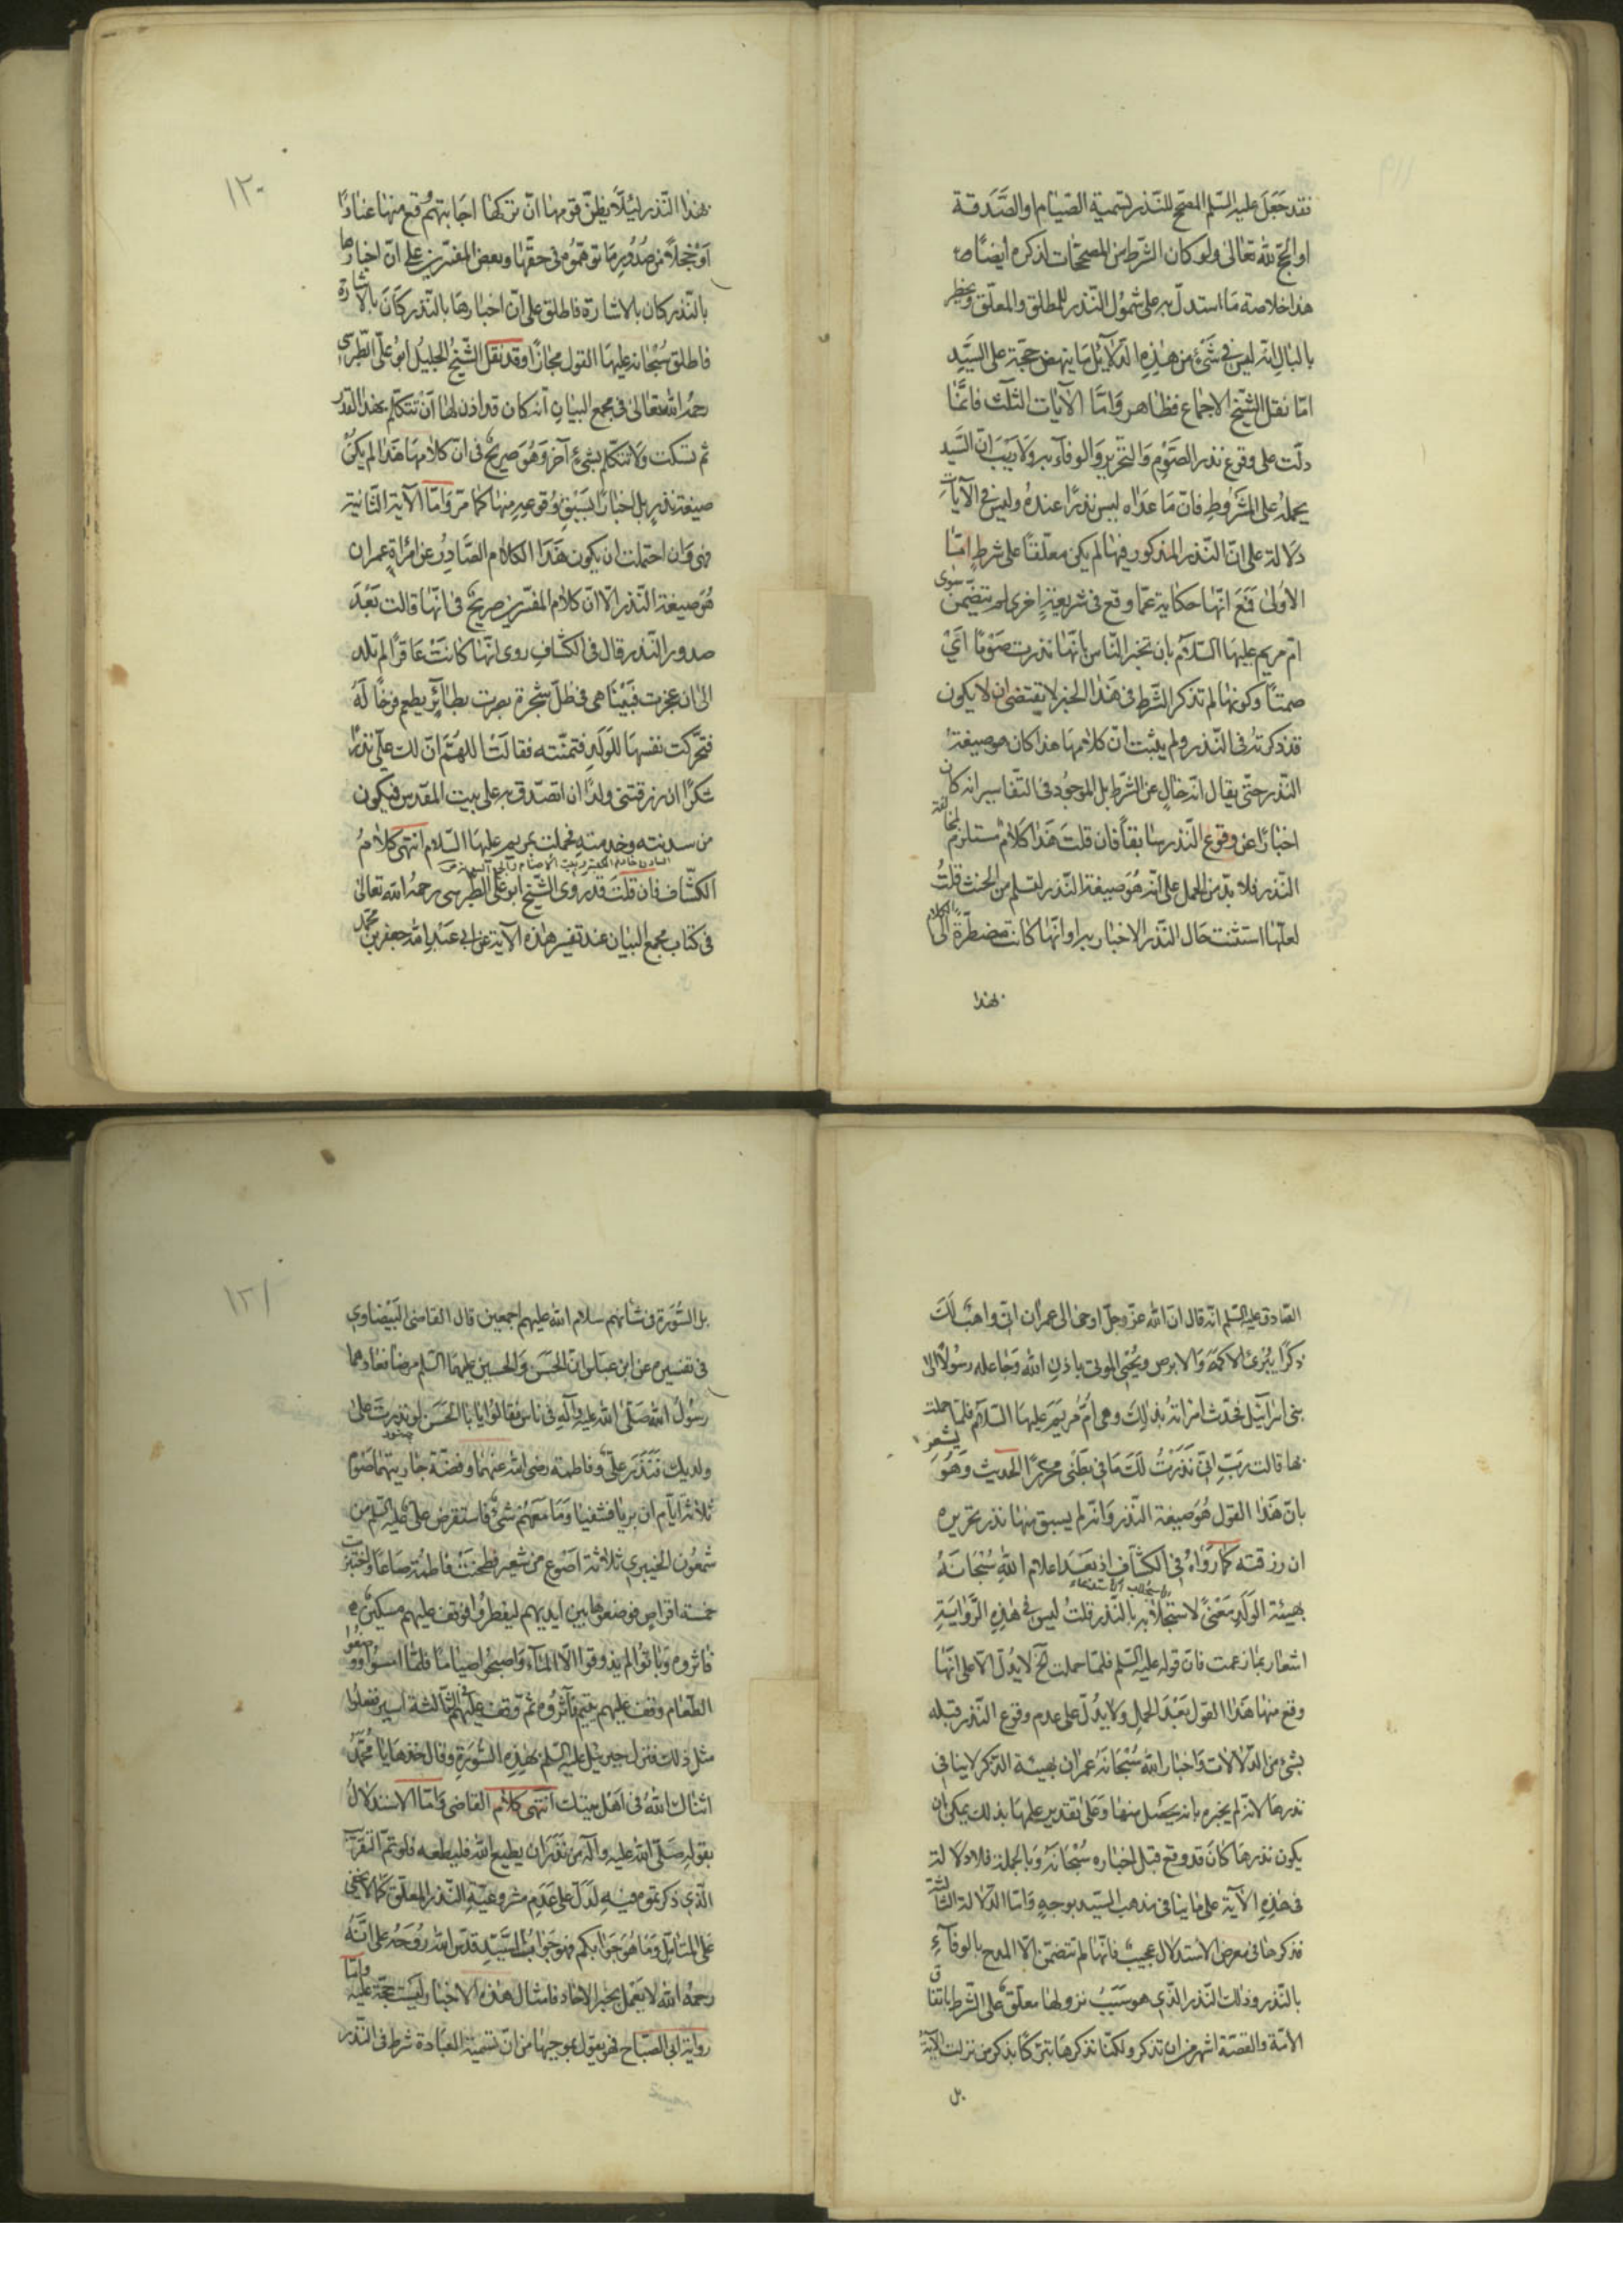 فقد جعل عليه السلم المصحح للنذر تسمية الصيام او الصدقة
او الحج لله تعالى ولو كان الشرط من المصححات لذكره ايضا
هذا خلاصة ما استدل به على شمول النذر للمطلق والمعلق ويخطر
بالبال انه ليس في شئ من هذه الدلايل ما ينهض حجة على السيد
اما نقل الشيخ الاجماع فظاهر واما الآيات الثلث فانما
دلت على وقوع نذر الصوم والتحرير والوفاء به ولا ريب ان السيد
يحمله على المشروط فان ما عداه ليس نذرا عنده وليس في الآيات
دلالة على ان النذر المذكور فيها لم يكن معلقا على شرط اما
الاولى فمع انها حكاية عما وقع في شريعة اخرى لم تتضمن سوى
امر مريم عليها السلام بان تخبر الناس بانها نذرت صوما اي
صمتا وكونها لم تذكر الشرط في هذا الخبر لا يقتضي ان لا يكون
قد ذكرته في النذر ولم يثبت ان كلامها هذا كان هو صيغة
النذر حتى يقال انه خال عن الشرط بل الموجود في التفاسير انه كان
اخبارا عن وقوع النذر سابقا فان قلت هذا كلام مستلزم لمخالفة
النذر فلا بد من الحمل على انه هو صيغة النذر لتسلم من الحنث قلت
لعلها استثنت حال النذر الاخبار به او انها كانت مضطرة الى الكلام
بهذا
١٢٠
بهذا النذر لئلا يظن قومها ان تركها اجابتهم وقع منها عنادا
او خجلا من صدور ما توهموه في حقها وبعض المفسرين على ان اخبارها
بالنذر كان بالاشارة فاطلق على ان اخبارها بالنذر كان بالاشارة
فاطلق سبحانه عليها القول مجازا وقد نقل الشيخ الجليل ابو علي الطبرسي
رحمه الله تعالى في مجمع البيان انه كان قد اذن لها ان تتكلم بهذا القدر
ثم تسكت ولا تتكلم بشئ آخر وهو صريح في ان كلامها هذا لم يكن
صيغة نذر بل اخبارا لسبق وقوعه منها كما مر واما الآية الثانية
فهي وان احتملت ان يكون هذا الكلام الصادر عن امراة عمران
هو صيغة النذر الا ان كلام المفسرين صريح في انها قالت بعد
صدور النذر قال في الكشاف روى انها كانت عاقرا لم تلد
الى ان عجزت فبينا هي في ظل شجرة بصرت بطائر يطعم فرخا له
فتحركت نفسها للولد فتمنته فقالت اللهم ان لك علي نذرا
شكرا ان رزقتني ولدا ان اتصدق به على بيت المقدس فيكون
من سدنته وخدمته فحملت بمريم عليها السلام انتهى كلام
الكشاف فان قلت قد روى الشيخ ابو علي الطبرسي رحمه الله تعالى
في كتاب مجمع البيان عند تفسير هذه الآية عن ابي عبد الله جعفر بن محمد
الصادق عليه السلم انه قال ان الله عز وجل اوحى الى عمران اني واهب لك
ذكرا يبرئ الاكمه والابرص ويحيي الموتى باذن الله وجاعله رسولا الى
بني اسرائيل فحدث امراته بذلك وهي ام مريم عليها السلام فلما حملت
بها قالت رب اني نذرت لك ما في بطني محررا الحديث وهو يشعر
بان هذا القول هو صيغة النذر وانه لم يسبق منها نذر تحريره
ان رزقته كما رواه في الكشاف اذ بعد اعلام الله سبحانه
بهبة الولد معنى لاستجلابه بالنذر قلت ليس في هذه الرواية
اشعار بما زعمت فان قوله عليه السلم فلما حملت الخ لا يدل الا على انها
وقع منها هذا القول بعد الحمل ولا يدل على عدم وقوع النذر قبله
بشئ من الدلالات واخبار الله سبحانه عمران بهبة الذكر لا ينافي
نذرها لانه لم يخبره بانه يحصل منها وعلى تقدير علمها بذلك يمكن ان
يكون نذرها كان قد وقع قبل اخباره سبحانه وبالجملة فلا دلالة
في هذه الآية على ما ينافي مذهب السيد بوجه واما الدلالة الثالثة
فذكرها في معرض الاستدلال عجيب فانها لم تتضمن الا المدح بالوفاء
بالنذر وذلك النذر الذي هو سبب نزولها معلق على الشرط باتفاق
الامة والقصة اشهر من ان تذكر ولكنا نذكرها تبركا بذكر من نزلت الآية
بل
١٢١
بل السورة في شانهم سلام الله عليهم اجمعين قال القاضي البيضاوي
في تفسيره عن ابن عباس ان الحسن والحسين عليهما السلم مرضا فعادهما
رسول الله صلى الله عليه وآله في ناس فقالوا يا با الحسن لو نذرت على
ولديك فنذر علي وفاطمة رضي الله عنهما وفضة جاريتهما صوم
ثلاثة ايام ان برئا فشفيا وما معهم شئ فاستقرض علي عليه السلم من
شمعون الخيبري ثلاثة اصوع من شعير فطحنت فاطمة صاعا واختبزت
خمسة اقراص فوضعوها بين ايديهم ليفطروا فوقف عليهم مسكين
فاثروه وباتوا لم يذوقوا الا الماء واصبحوا صياما فلما امسوا ووضعوا
الطعام وقف عليهم يتيم فآثروه ثم وقف عليهم في الثالثة اسير ففعلوا
مثل ذلك فنزل جبرئيل عليه السلم بهذه السورة وقال خذها يا محمد
هناك الله في اهل بيتك انتهى كلام القاضي واما الاستدلال
بقوله صلى الله عليه وآله من نذر ان يطيع الله فليطعه فلو تم التقريب
الذي ذكرتموه فيه لدل على عدم مشروعية النذر المعلق كما لا يخفى
على المتامل وما هو جوابكم فهو جواب السيد قدس الله روحه على انه
رحمه الله لا يعمل بخبر الآحاد فامثال هذه الاخبار ليست حجة عليه واما
رواية ابي الصباح فهو يقول بموجبها من ان تسمية العبادة شرط في النذر